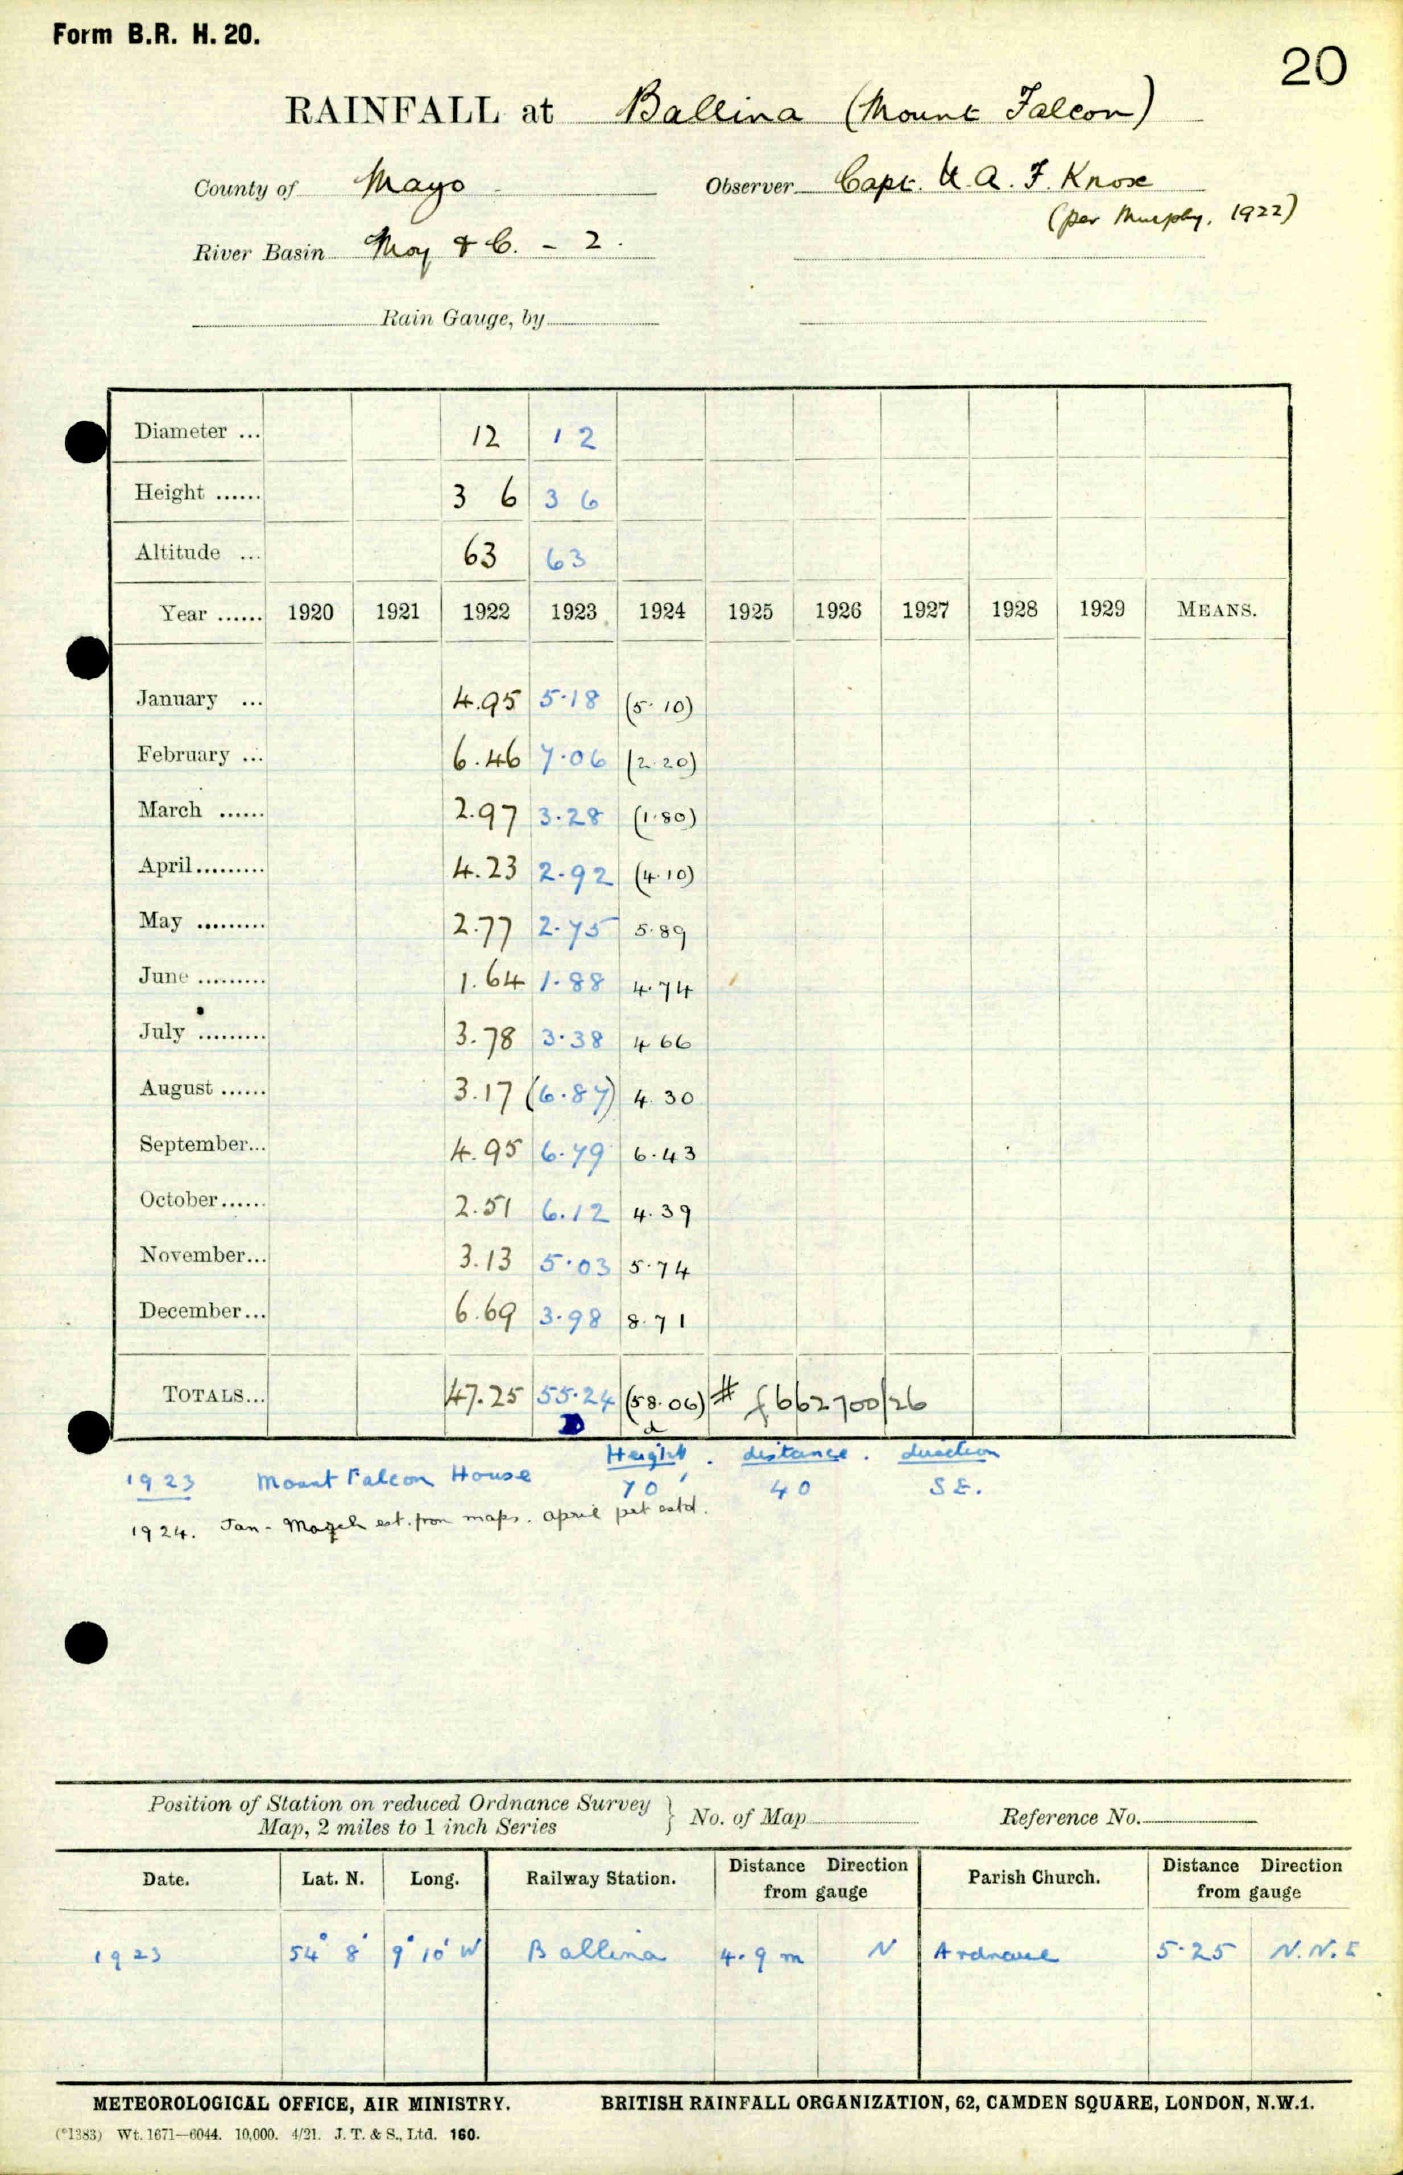 Form B.R. H. 20.
20
RAINFALL at Ballina (Mount Falcon)
County of Mayo Observer Capt. U. A. F. Knox
(per Murphy, 1922)
River Basin Moy & C. - 2.
Rain Gauge, by
Diameter ... 12 12
Height ...... 3 6 3 6
Altitude ... 63 63
Year ...... 1920 1921 1922 1923 1924 1925 1926 1927 1928 1929 MEANS.
January ... 4.95 5.18 (5.10)
February ... 6.46 7.06 (2.20)
March ...... 2.97 3.28 (1.80)
April......... 4.23 2.92 (4.10)
May ......... 2.77 2.75 5.89
June ......... 1.64 1.88 4.74
July ......... 3.78 3.38 4 66
August ...... 3.17 (6.87) 4.30
September... 4.95 6.79 6.43
October...... 2.51 6.12 4.39
November... 3.13 5.03 5.74
December... 6.69 3.98 8.71
TOTALS... 47.25 55.24 (58.06) # £662700/26
D d
Height. distance. direction
1923 Mount Falcon House 70' 40 S E.
1924. Jan - March est. from maps. April prt estd.
Position of Station on reduced Ordnance Survey
Map, 2 miles to 1 inch Series } No. of Map Reference No.
Date. Lat. N. Long. Railway Station. Distance Direction from gauge Parish Church. Distance Direction from gauge
1923 54° 8' 9° 10' W Ballina 4.9 m N 5.25 N.N.E
METEOROLOGICAL OFFICE, AIR MINISTRY. BRITISH RAINFALL ORGANIZATION, 62, CAMDEN SQUARE, LONDON, N.W.1.
(*1383) Wt. 1671—6044. 10,000. 4/21. J. T. & S., Ltd. 160.